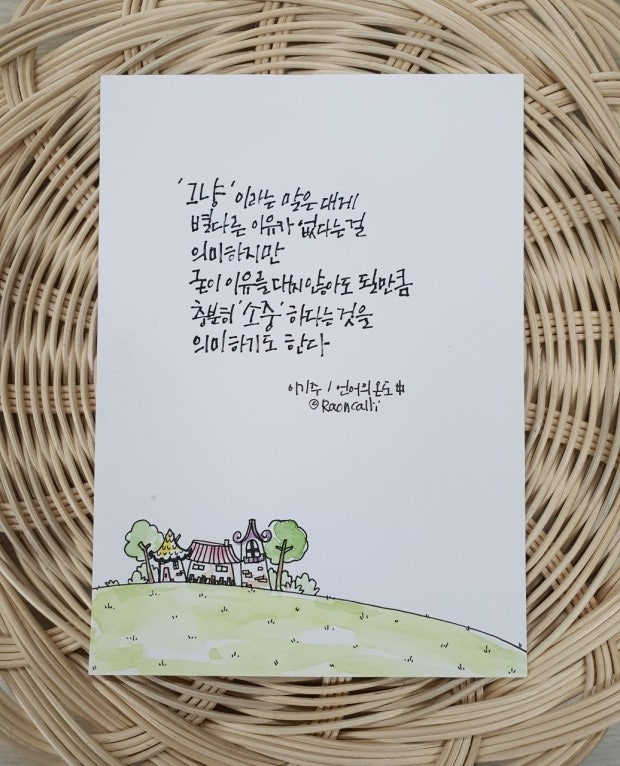 '그냥'이라는 말은 대게
별다른 이유가 없다는걸
의미하지만
굳이 이유를 대지 않아도 될만큼
충분히 '소중'하다는 것을
의미하기도 한다
이기주 / 언어의 온도 中
©Raoncalli